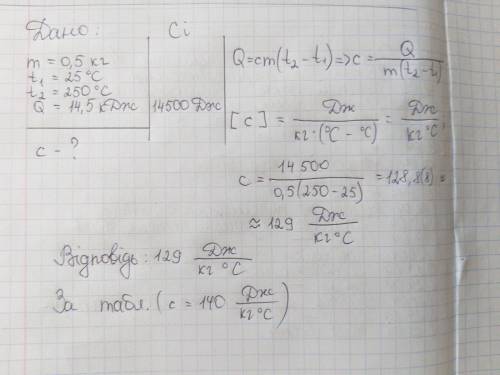 Дано: Сі
m = 0,5 кг
t₁ = 25 °C
t₂ = 250 °C
Q = 14,5 кДж 14500 Дж
c - ?
Q = cm(t₂ - t₁) => c = Q / m(t₂ - t₁)
[c] = Дж / кг·(°C - °C) = Дж / кг°C
c = 14 500 / 0,5(250 - 25) = 128,8(8) ≈
≈ 129 Дж / кг°C
Відповідь: 129 Дж / кг °C
За табл. (c = 140 Дж / кг°C)